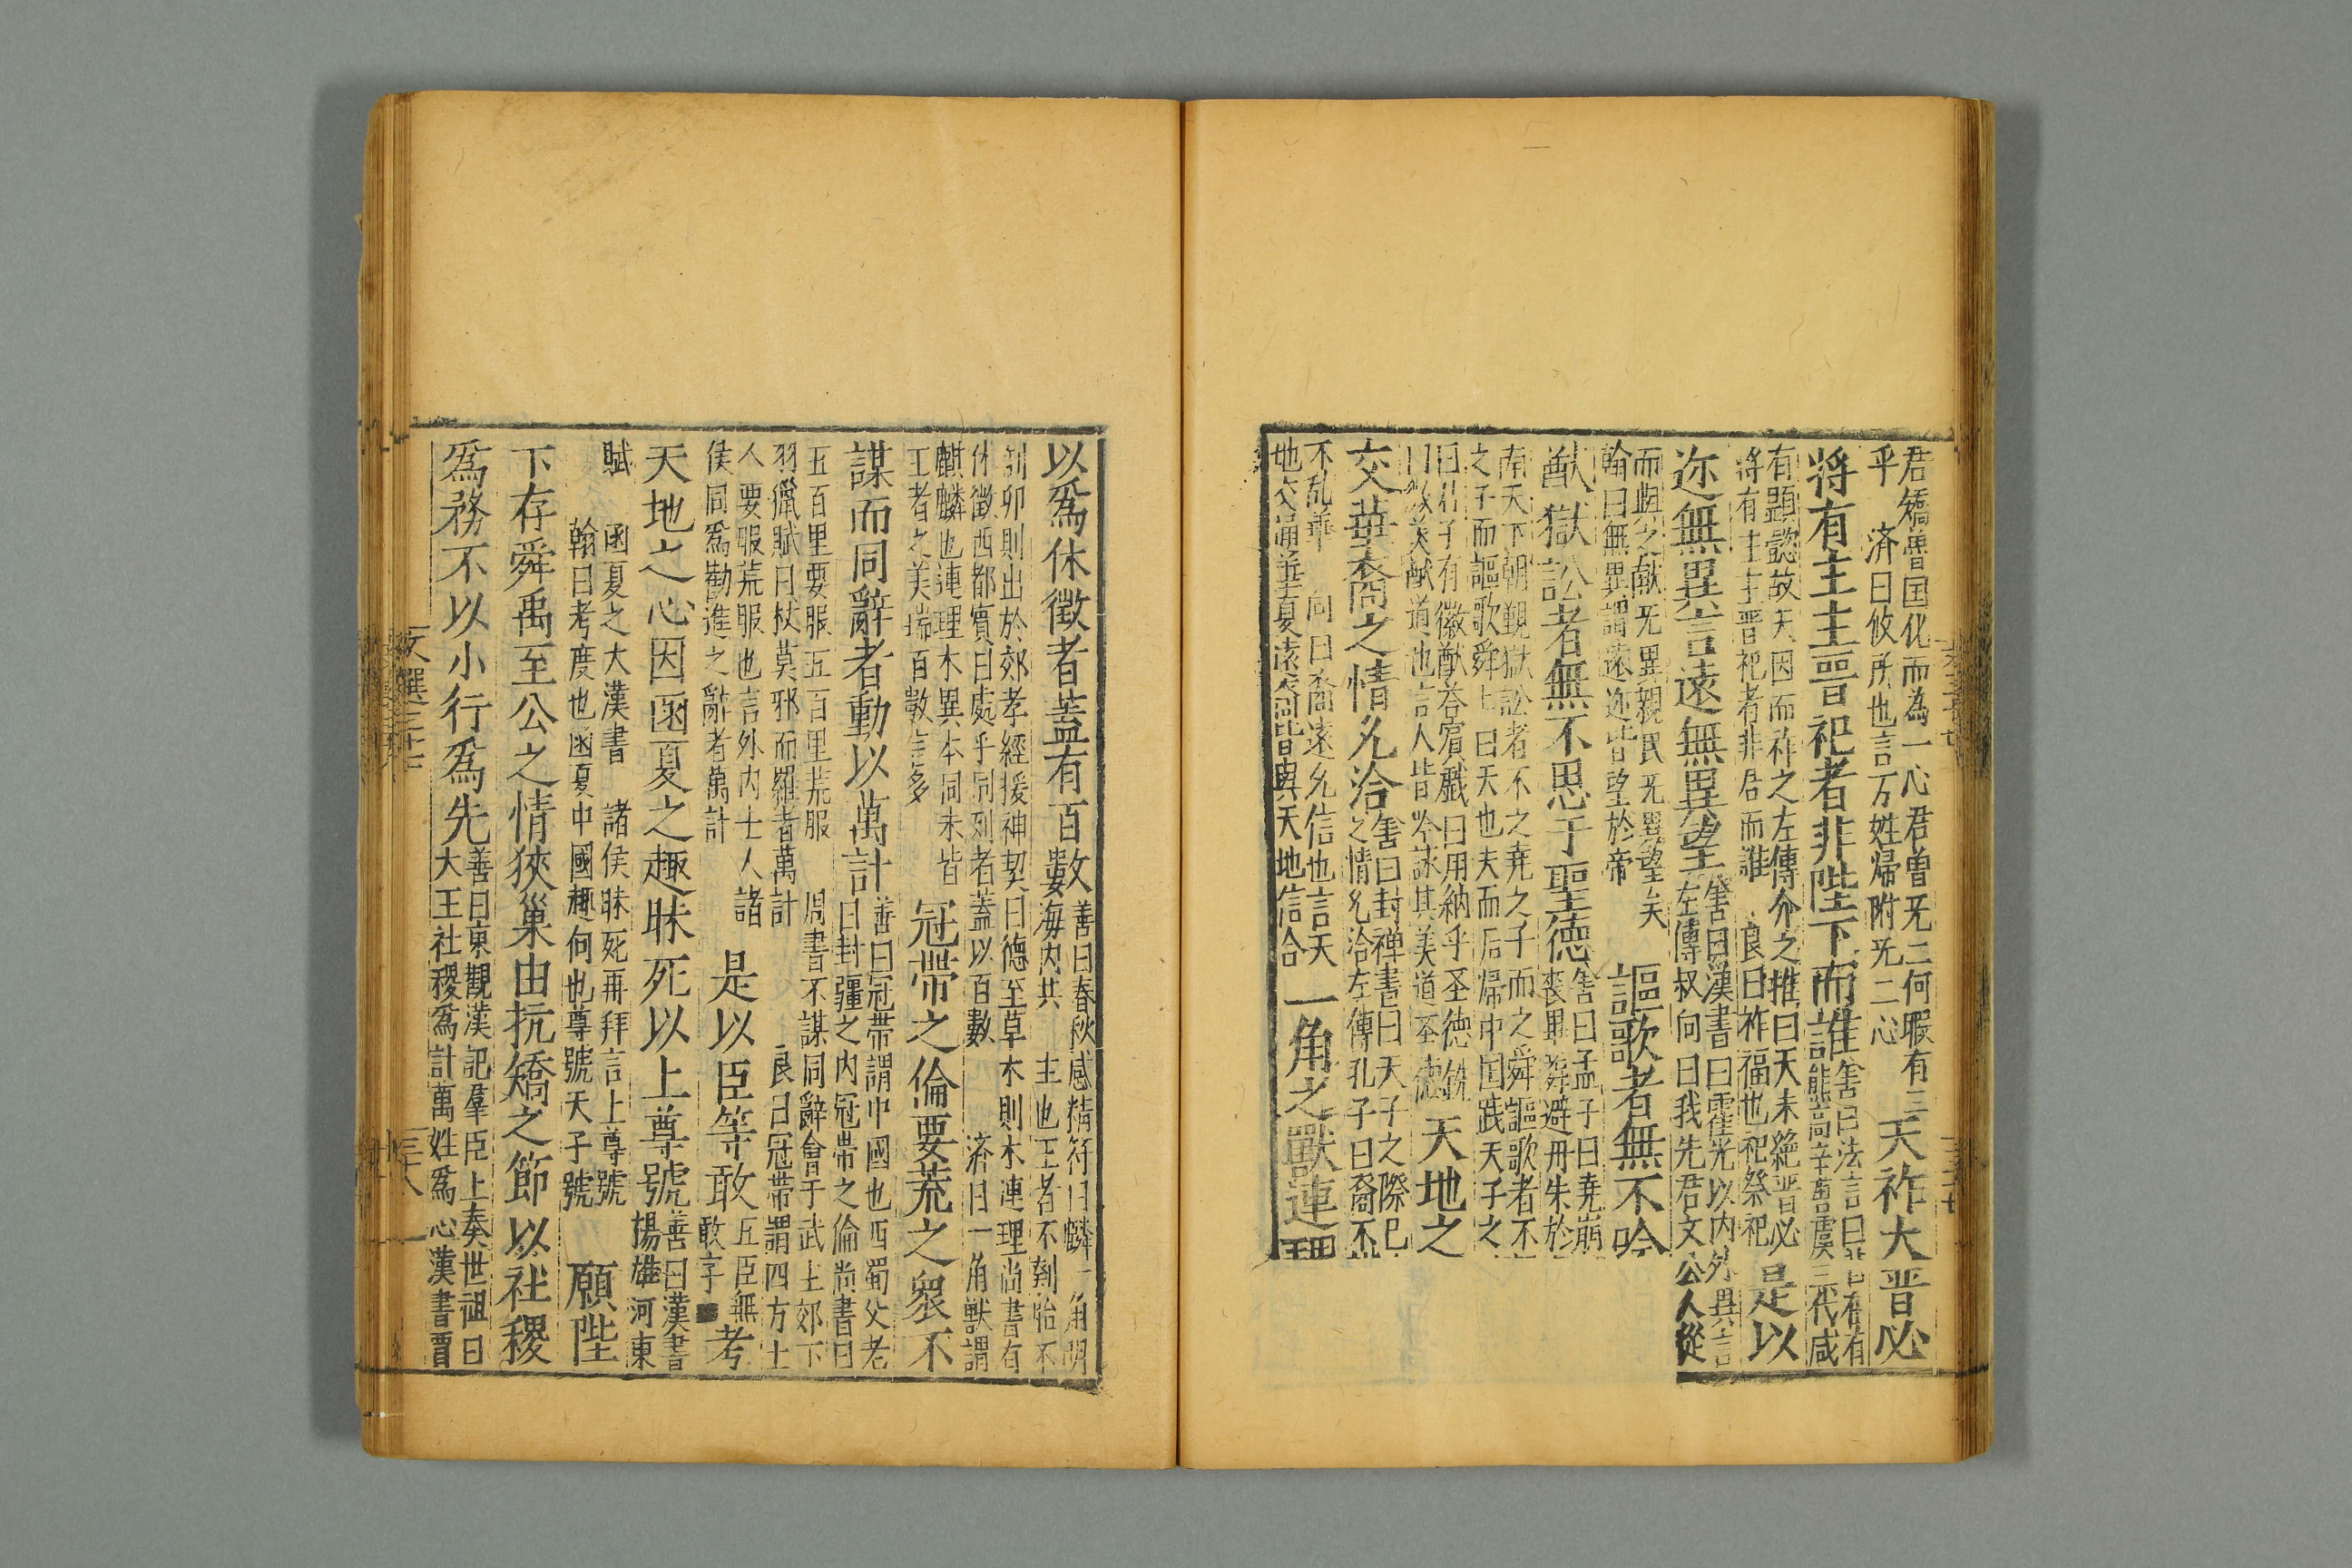 君矯魯国化而為一心君曽旡二何暇有三
乎　済曰攸所也言万姓帰附旡二心
天祚大晋必
將有主主晉祀者非陛下而誰
善曰法言曰
熊高辛唐虞三代咸
有顕懿故天因而祚之左傳介之推曰天未絶晋必
將有主主晋祀者非君而誰　良曰祚福也祀祭祀
是以
迩無異言遠無異望
善曰漢書曰霍光以内外異言
左傳叔向曰我先君文公人從
而與之献旡異親民旡異望矣
翰曰無異謂遠迩皆望於帝
謳歌者無不吟
猷獄訟者無不思于聖德
善曰孟子曰堯崩
喪畢舜避丹朱於
南天下朝觀獄訟者不之堯之子而之舜謳歌者不
之子而謳歌舜上曰天也夫而后帰中国践天子之
曰君子有徽猷荅賔戲曰用納乎圣德銑
曰猷美猷道也言人皆吟詠其美道圣德
天地之
交華裔之情允洽
善曰封禅書曰天子之際已
之情允洽左傳孔子曰裔不
不乱華　向曰裔遠允信也言天
地交通華夏遠裔皆與天地信合
一角之獸連理
以爲休徴者蓋有百數
善曰春秋感精符曰麟一角明
海内共　主也王者不刳胎不
剖卵則出於郊孝經援神契曰德至草木則木連理尚書有
休徴西都賓曰處乎列列者蓋以百數　済曰一角獣謂
麒麟也連理木異本同末皆
王者之美瑞百數言多
冠帶之倫要荒之衆不
謀而同辭者動以萬計
善曰冠帶謂中國也西蜀父老
曰封疆之内冠帶之倫尚書曰
五百里要服五百里荒服　周書不謀同辭會于武王郊下
羽獵賦曰杖莫邪而羅者萬計　良曰冠帶謂四方士
人要服荒服也言外内士人諸
侯同爲勸進之辭者萬計
是以臣等敢
五臣無
敢字
考
天地之心因函夏之趣昧死以上尊號
善曰漢書
揚雄河東
賦　函夏之大漢書　諸侯昧死再拜言上尊號
翰曰考度也函夏中國趣向也尊號天子號
願陛
下存舜禹至公之情狹巢由抗矯之節以社稷
爲務不以小行爲先
善曰東觀漢記羣臣上奏世祖曰
大王社稷爲計萬姓爲心漢書賈
文選三十七
三十八